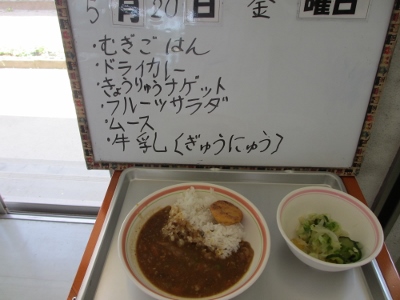 5月20日 金 曜日
・むぎごはん
・ドライカレー
・きょうりゅうナゲット
・フルーツサラダ
・ムース
・牛乳(ぎゅうにゅう)